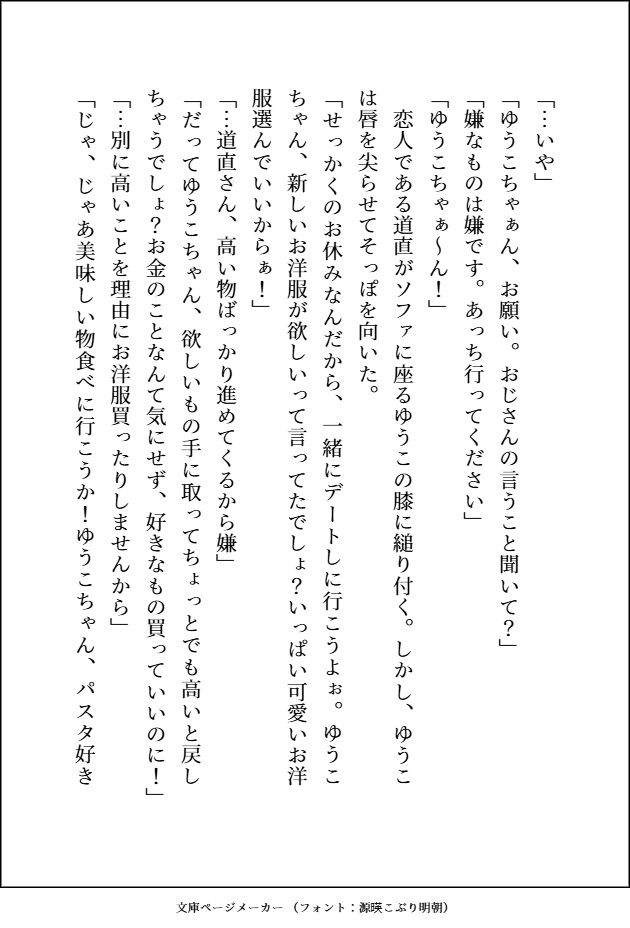 「…いや」
「ゆうこちゃぁん、お願い。おじさんの言うこと聞いて？」
「嫌なものは嫌です。あっち行ってください」
「ゆうこちゃぁ～ん！」
　恋人である道直がソファに座るゆうこの膝に縋り付く。しかし、ゆうこ
は唇を尖らせてそっぽを向いた。
「せっかくのお休みなんだから、一緒にデートしに行こうよぉ。ゆうこ
ちゃん、新しいお洋服が欲しいって言ってたでしょ？いっぱい可愛いお洋
服選んでいいからぁ！」
「…道直さん、高い物ばっかり進めてくるから嫌」
「だってゆうこちゃん、欲しいもの手に取ってちょっとでも高いと戻し
ちゃうでしょ？お金のことなんて気にせず、好きなもの買っていいのに！」
「…別に高いことを理由にお洋服買ったりしませんから」
「じゃ、じゃあ美味しい物食べに行こうか！ゆうこちゃん、パスタ好き
文庫ページメーカー（フォント：源暎こぶり明朝）